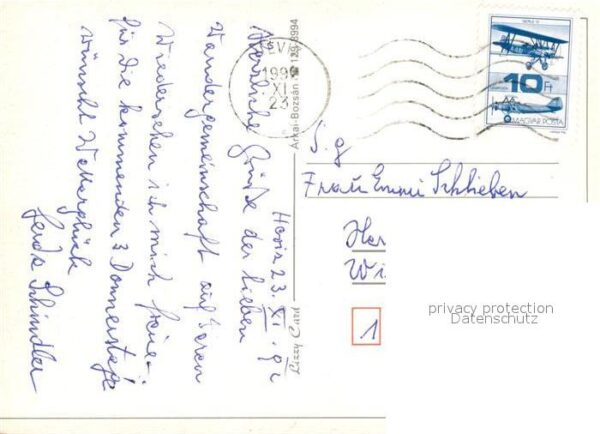 Hevis 23. XI. 92
Herzliche Grüße der lieben
Wandergemeinschaft auf deren
Wiedersehen ich mich freue
für die kommenden 3 Donnerstage
wünscht Wetterglück
Gerda Schindler
HÉVÍZ
199
XI
23
Arkai-Bozsán
Lizzy Card
10 Ft
MAGYAR POSTA
S. g
Frau Emmi Schlieben
Her
Wi
1
privacy protection
Datenschutz